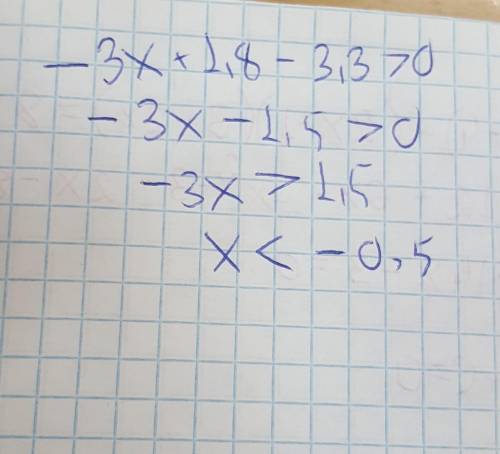 -3x+1,8-3,3>0
-3x-1,5>0
-3x>1,5
x<-0,5